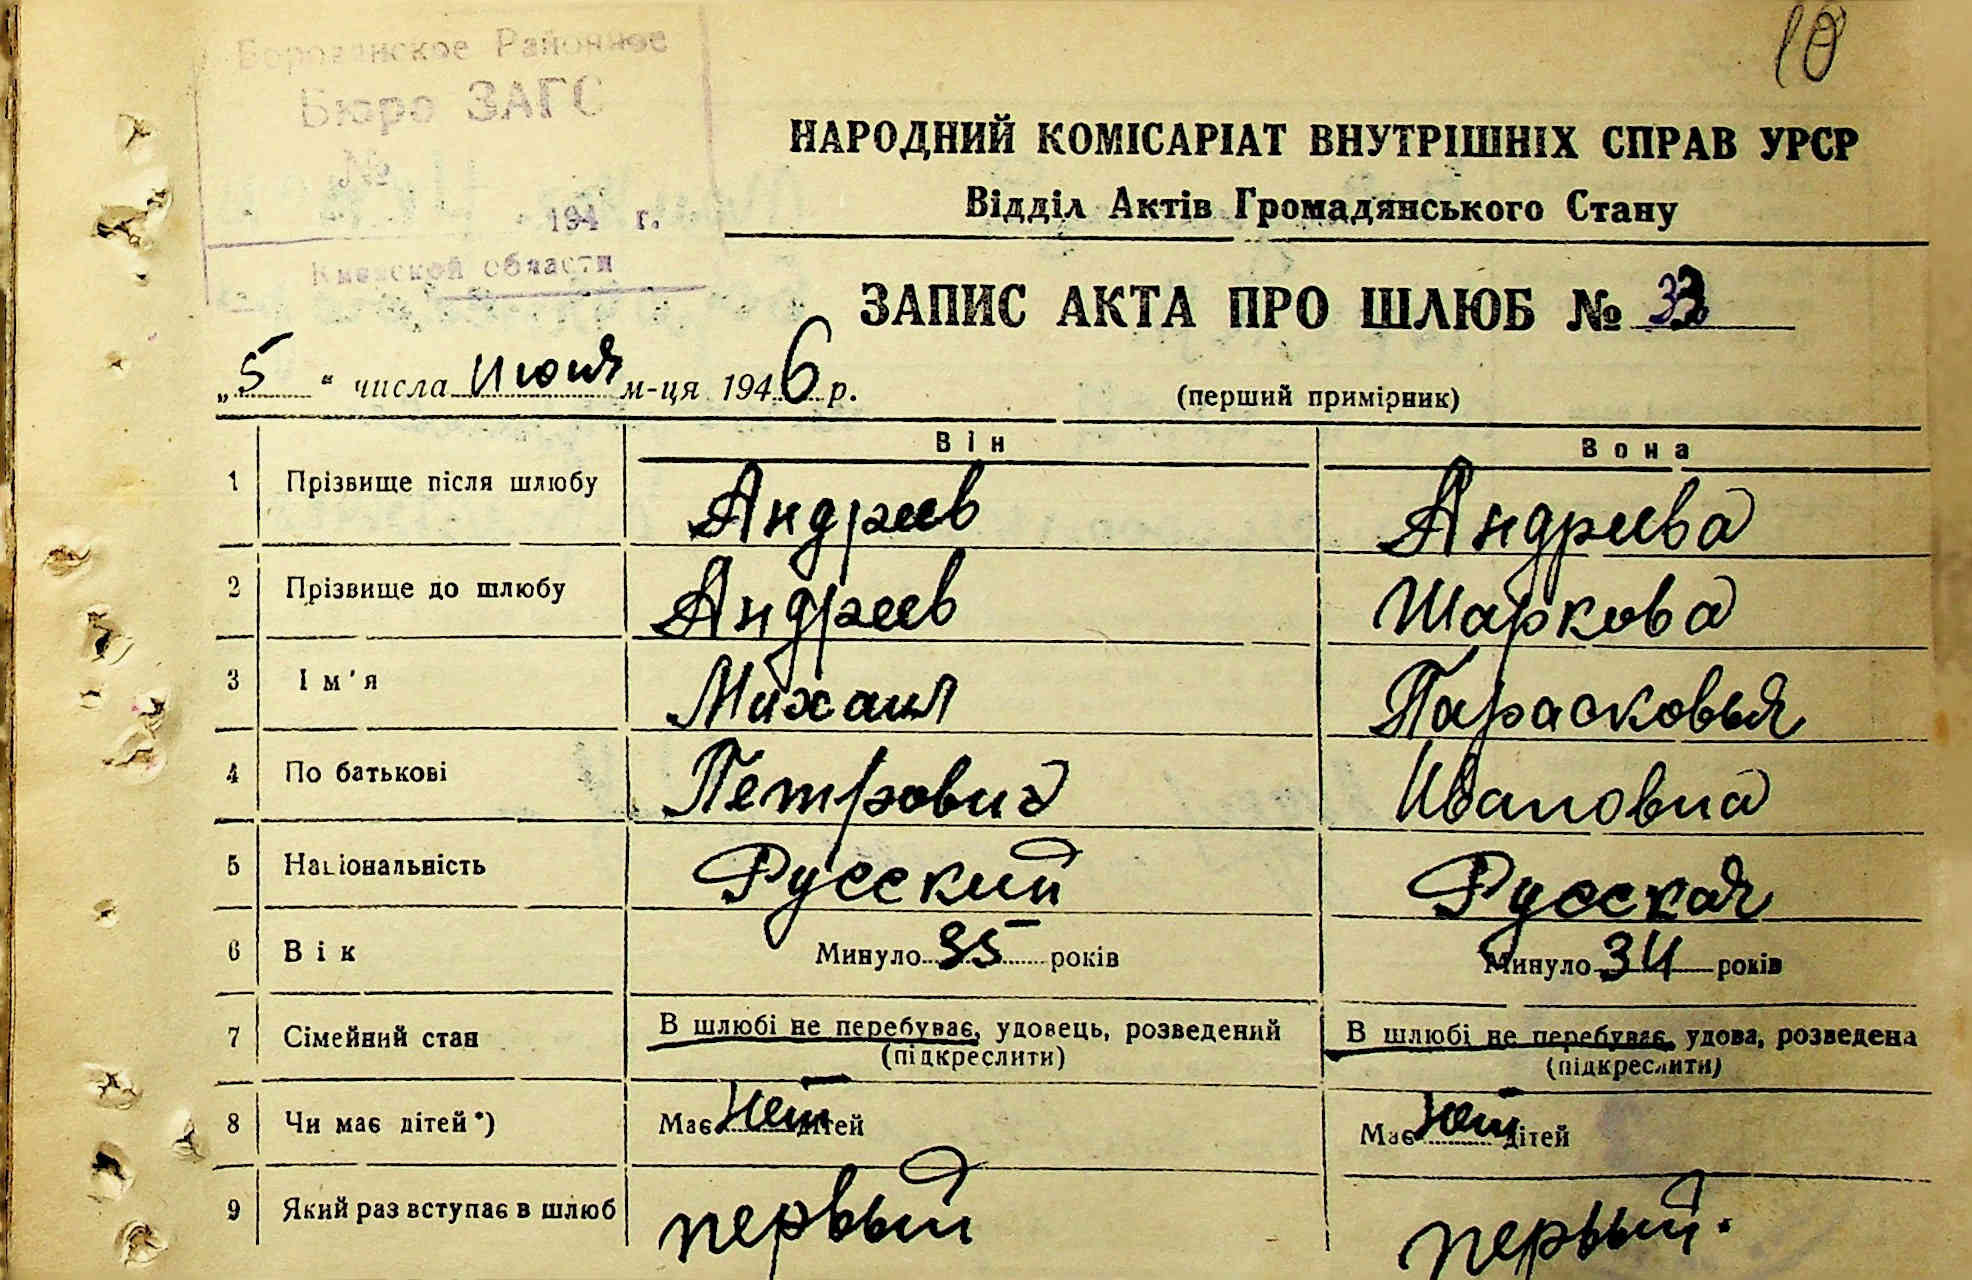 10
Бородянское Районное
Бюро ЗАГС
№
194 г.
Киевской области
НАРОДНИЙ КОМІСАРІАТ ВНУТРІШНІХ СПРАВ УРСР
Відділ Актів Громадянського Стану
ЗАПИС АКТА ПРО ШЛЮБ № 33
„5“ числа июня м-ця 1946 р.
(перший примірник)
Він Вона
1 Прізвище після шлюбу Андреев Андреева
2 Прізвище до шлюбу Андреев Шаркова
3 Ім'я Михаил Парасковья
4 По батькові Петрович Ивановна
5 Національність Русский Русская
6 Вік Минуло 35 років Минуло 34 років
7 Сімейний стан В шлюбі не перебуває, удовець, розведений В шлюбі не перебуває, удова, розведена
(підкреслити) (підкреслити)
8 Чи має дітей*) Має Нет дітей Має Нет дітей
9 Який раз вступає в шлюб первый первый.